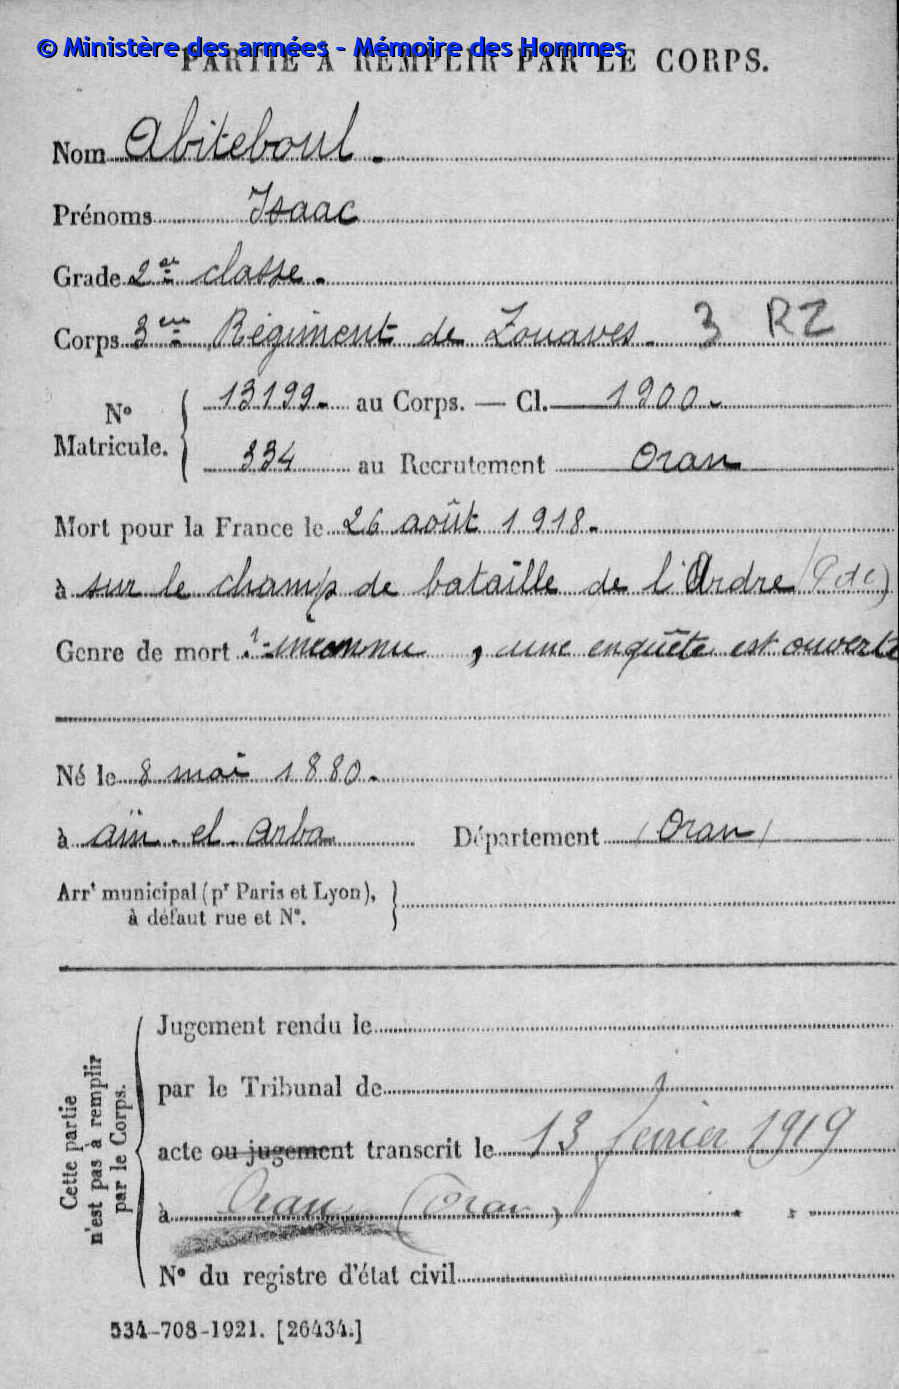 © Ministère des armées - Mémoire des Hommes
PARTIE À REMPLIR PAR LE CORPS.
Nom Abiteboul.
Prénoms Isaac
Grade 2e classe.
Corps 3eme Régiment de Zouaves. 3 RZ
N° Matricule. { 13199. au Corps. — Cl. 1900.
334 au Recrutement Oran
Mort pour la France le 26 août 1918.
à sur le champ de bataille de l'Ordre
Genre de mort inconnu, une enquête est ouverte
Né le 8 mai 1880.
à Aïn-el-Arba Département (Oran)
Arrt municipal (pr Paris et Lyon),
à défaut rue et N°.
Cette partie
n'est pas à remplir
par le Corps.
Jugement rendu le
par le Tribunal de
acte ou jugement transcrit le 13 février 1919
à Oran (Oran)
N° du registre d'état civil
534-708-1921. [26434.]